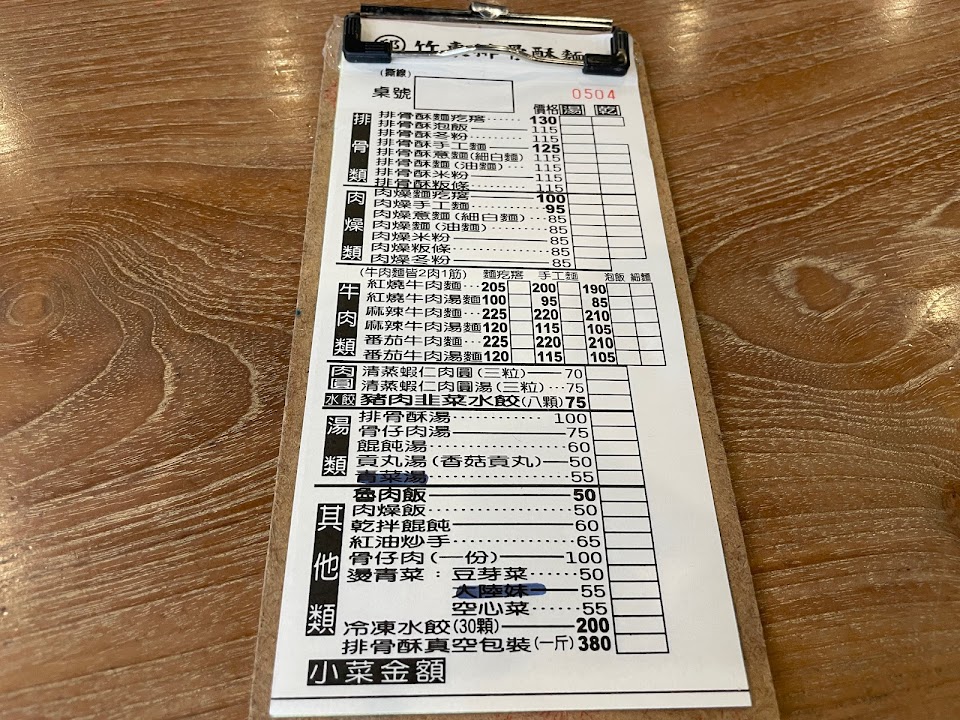 竹東排骨酥麵
(撕線)
桌號
0504
價格 湯 乾
排骨類
排骨酥麵疙瘩……130
排骨酥泡飯——115
排骨酥冬粉……115
排骨酥手工麵——125
排骨酥意麵(細白麵) 115
排骨酥麵(油麵)…115
排骨酥米粉——115
排骨酥粄條……115
肉燥類
肉燥麵疙瘩——100
肉燥手工麵……95
肉燥意麵(細白麵)…85
肉燥麵(油麵)……85
肉燥米粉——85
肉燥粄條……85
肉燥冬粉——85
牛肉類
(牛肉麵皆2肉1筋) 麵疙瘩 手工麵 泡飯 細麵
紅燒牛肉麵…205 200 190
紅燒牛肉湯麵100 95 85
麻辣牛肉麵…225 220 210
麻辣牛肉湯麵120 115 105
番茄牛肉麵…225 220 210
番茄牛肉湯麵120 115 105
肉圓
清蒸蝦仁肉圓(三粒)——70
清蒸蝦仁肉圓湯(三粒)…75
水餃 豬肉韭菜水餃(八顆)75
湯類
排骨酥湯……100
骨仔肉湯——75
餛飩湯……60
貢丸湯(香菇貢丸)—50
青菜湯……55
其他類
魯肉飯——50
肉燥飯……50
乾拌餛飩——60
紅油炒手……65
骨仔肉(一份)——100
燙青菜：豆芽菜……50
大陸妹—55
空心菜……55
冷凍水餃(30顆)——200
排骨酥真空包裝(一斤)380
小菜金額